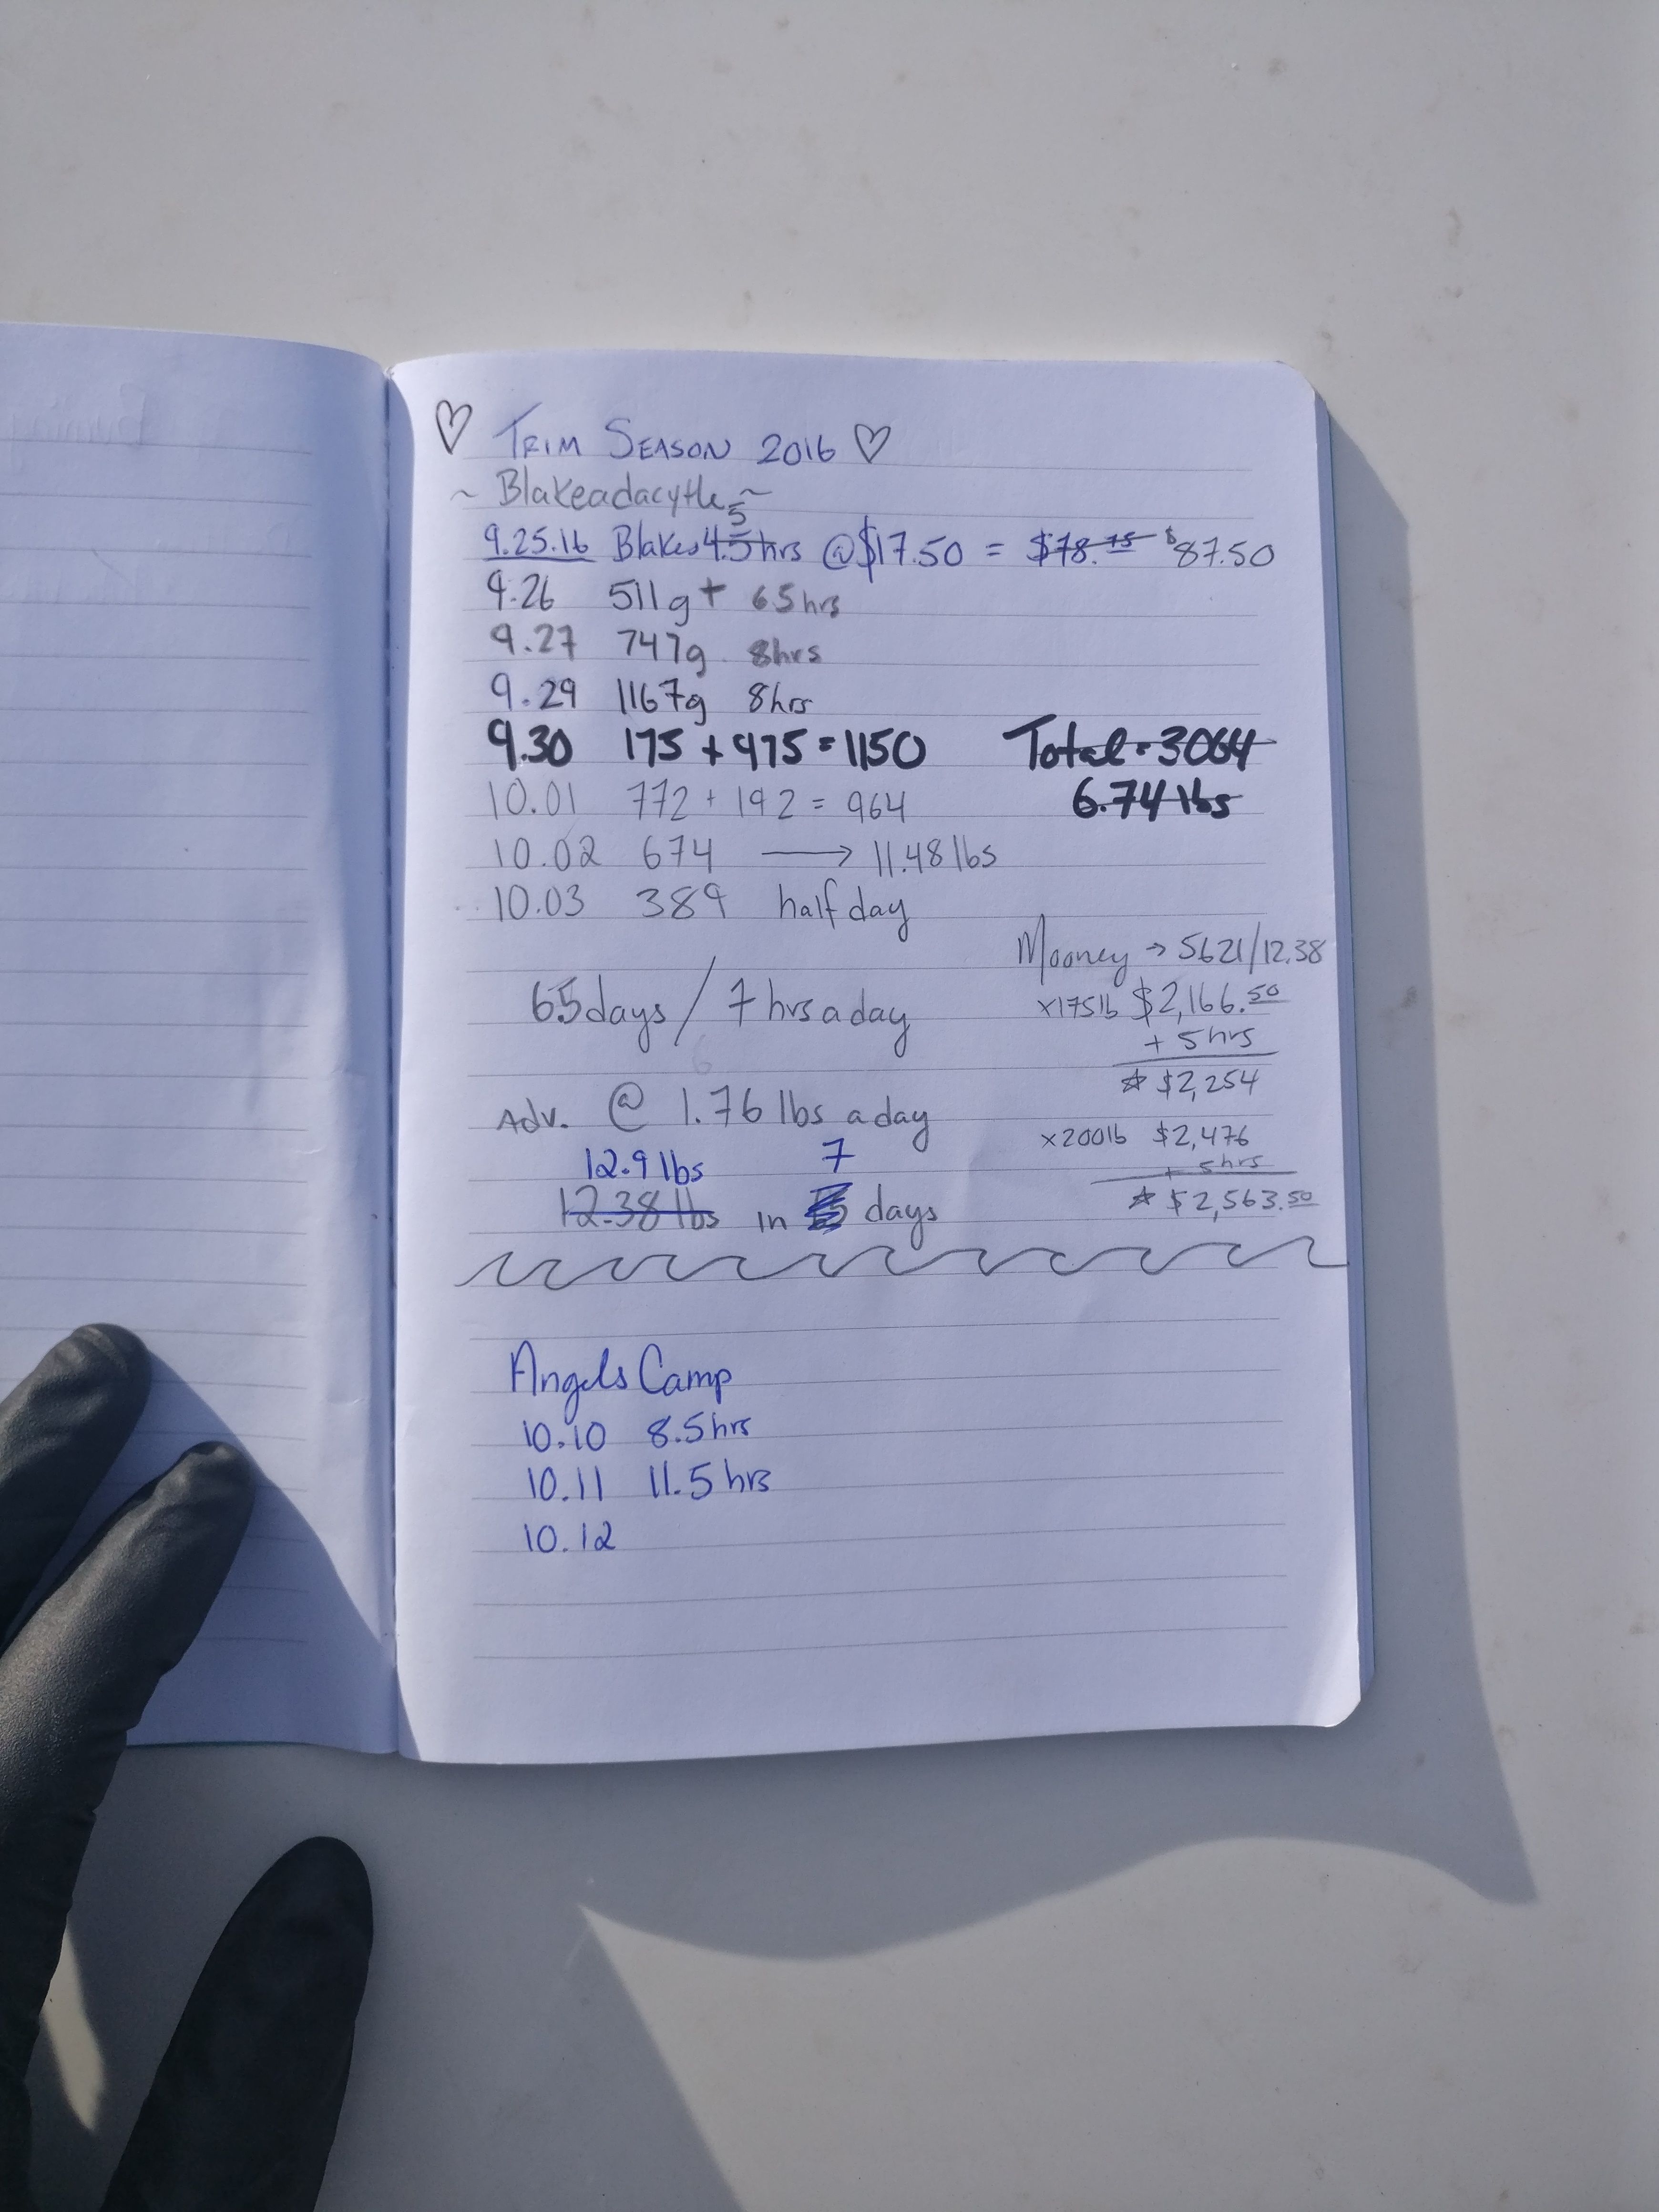 ♡ TRIM SEASON 2016 ♡
~ Blakeadacytle ~
9.25.16 Blakes 4.5hrs 5 @ $17.50 = $78.75 $87.50
9.26 511g + 65hrs
9.27 747g 8hrs
9.29 1167g 8hrs
9.30 175 + 975 = 1150 Total = 3064
10.01 772 + 192 = 964 6.74 lbs
10.02 674 → 11.48 lbs
10.03 389 half day
Mooney → 5621/12.38
65days / 7 hrs a day x175lb $2,166.50
+ 5 hrs
☆ $2,254
Adv. @ 1.76 lbs a day
x200lb $2,476
12.9 lbs 7
+ 5hrs
12.38 lbs in days ☆ $2,563.50
Angels Camp
10.10 8.5hrs
10.11 11.5 hrs
10.12